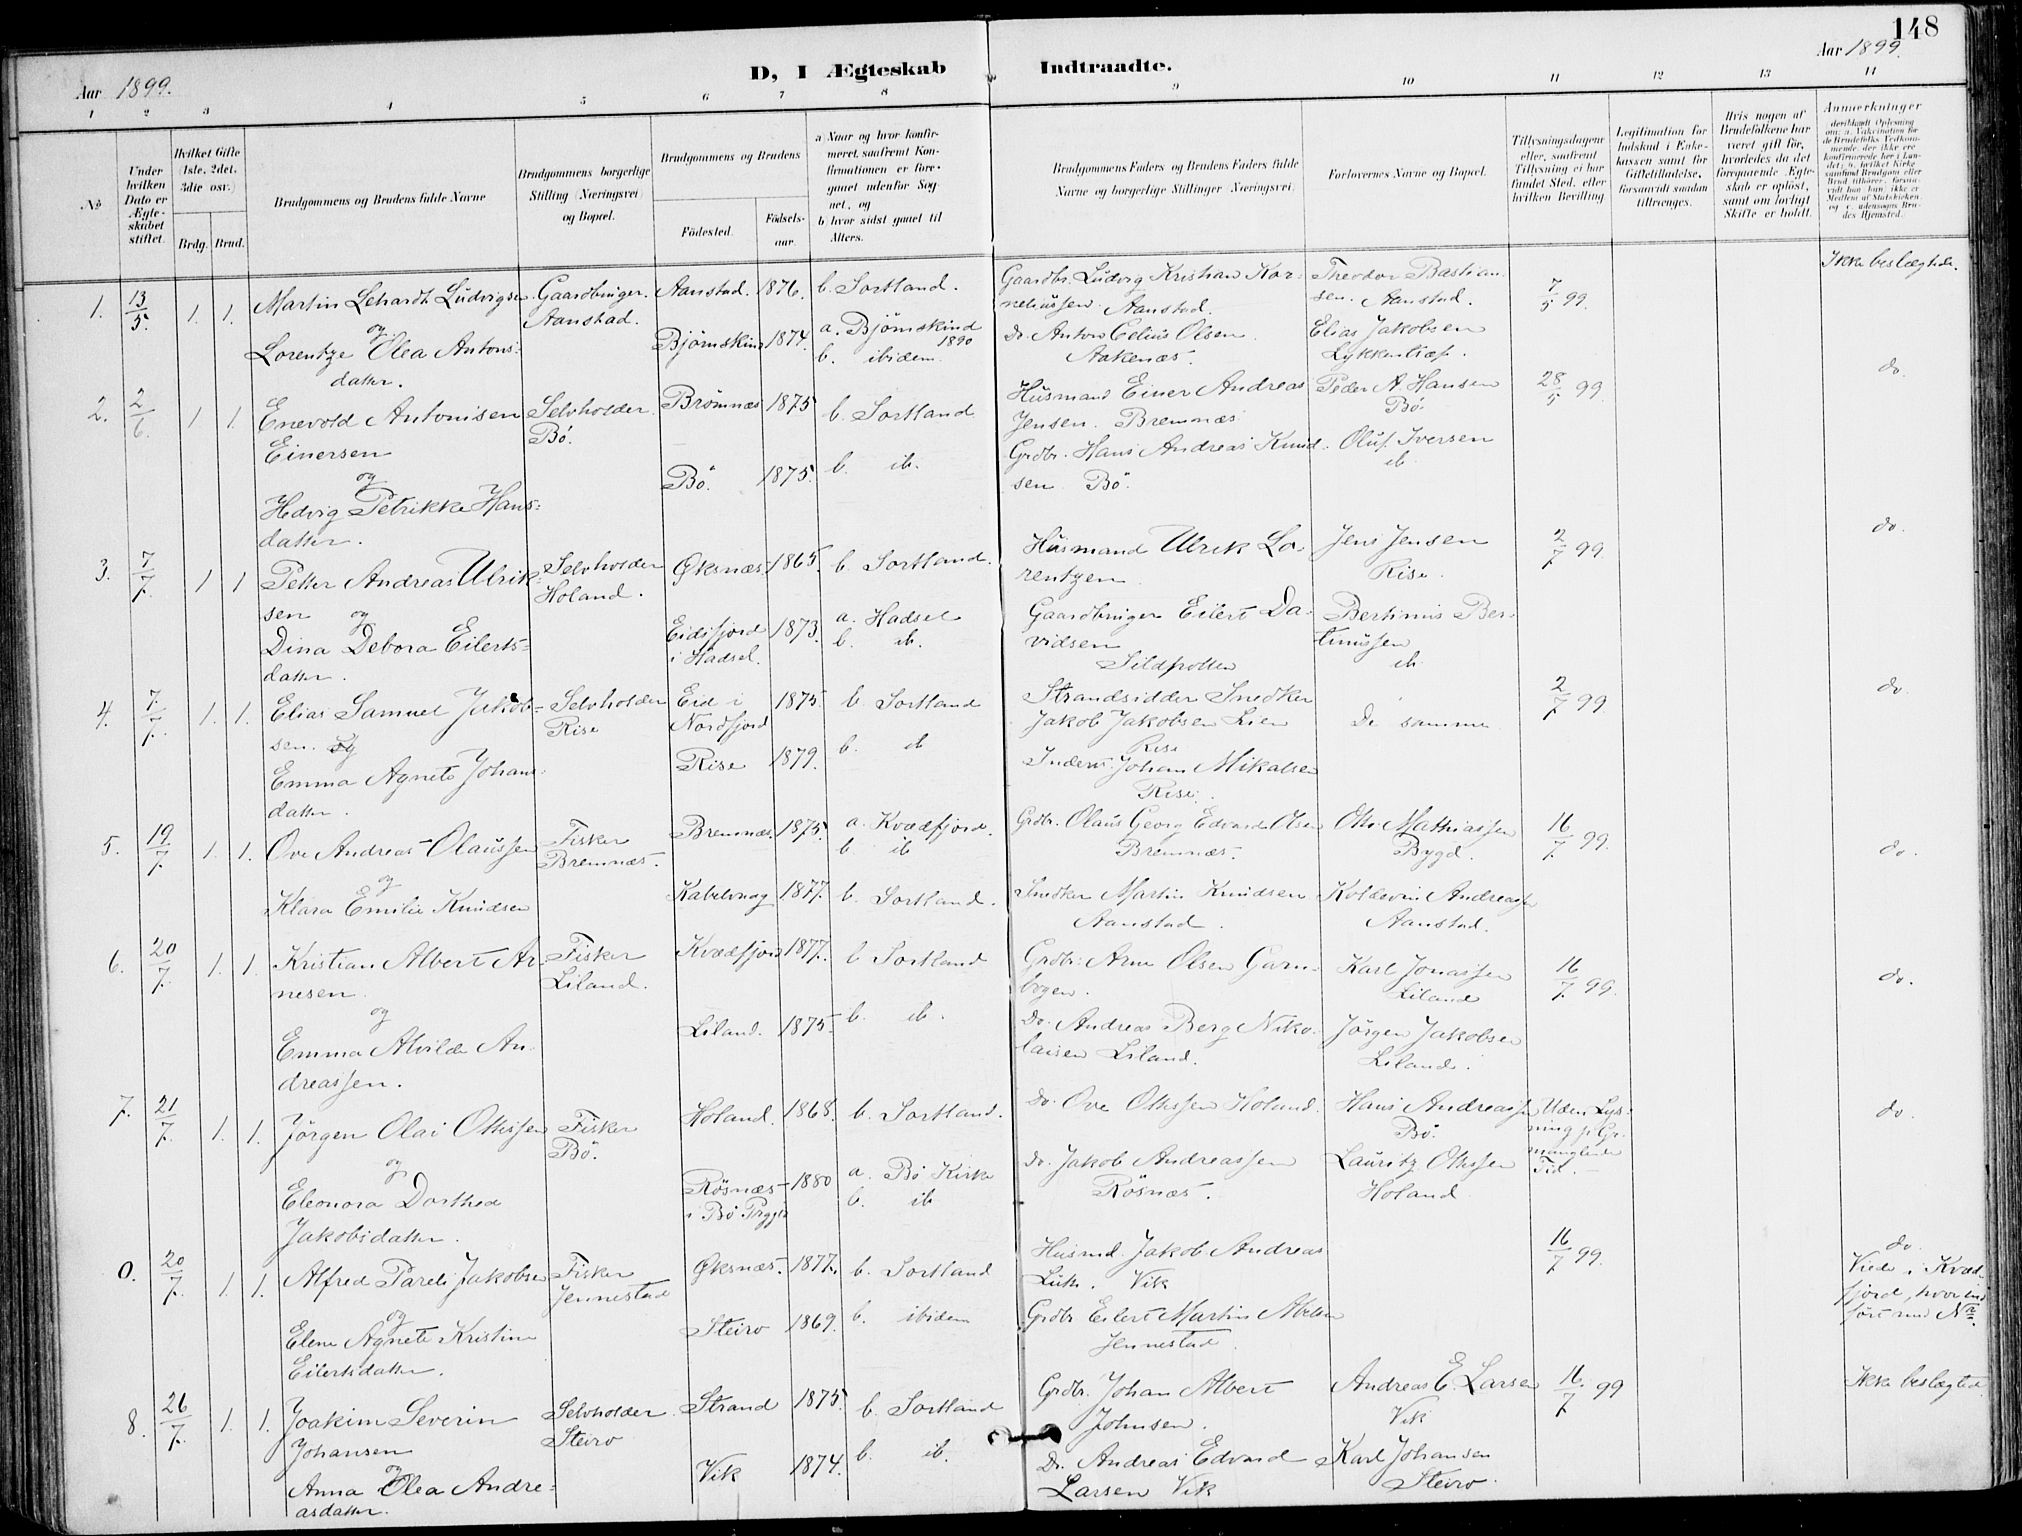 148
Aar 1899.
D, I Ægteskab Indtraadte.
Aar 1899.
1 2 3 4 5 6 7 8 9 10 11 12 13 14
No
Under hvilken Dato er Ægteskabet stiftet.
Hvilket Gifte (1ste, 2det, 3die osv.)
Brdg. Brud.
Brudgommens og Brudens fulde Navne
Brudgommens borgerlige Stilling (Næringsvei) og Bopæl.
Brudgommens og Brudens
Fødested.
Fødsels-aar.
a Naar og hvor konfirmeret, saafremt Konfirmationen er foregaaet udenfor Sognet, og
b hvor sidst gaaet til Alters.
Brudgommens Faders og Brudens Faders fulde Navne og borgerlige Stillinger (Næringsvei).
Forlovernes Navne og Bopæl.
Tillysningsdagene eller, saafremt Tillysning ei har fundet Sted, efter hvilken Bevilling.
Legitimation for Indskud i Enkekassen samt for Giftetilladelse, forsaavidt saadan tiltrænges.
Hvis nogen af Brudefolkene har været gift før, hvorledes da det foregaaende Ægteskab er opløst, samt om lovligt Skifte er holdt.
Anmerkninger
1. 13/5. 1. 1. Martin Lehardt Ludvigsen
og
Lorentze Olea Antons-
datter.
Gaardbruger.
Aanstad.
Aanstad. 1876. b. Sortland.
Bjørnskind 1874. a. Bjørnskind 1890
b. ibidem.
Gaardbr. Ludvig Kristian Kor-
neliussen. Aanstad.
Do. Anton Celius Olsen
Aakenæs.
Theodor Bastian-
sen. Aanstad.
Elias Jakobsen
7/5 99.
Ikke beslægtede.
2. 2/6. 1 1. Enevold Antonisen
Einersen
og
Hedvig Petrikke Hans-
datter.
Selvholder.
Bø.
Bremnæs 1875 b. Sortland
Bø. 1875. b. ib.
Husmand Einer Andreas
Jensen. Bremnæs
Grdbr. Hans Andreas Knud-
sen Bø.
Peder A. Hansen
Bø.
Oluf Iversen
ib
28/5 99.
do.
3. 7/7. 1 1 Petter Andreas Ulrik-
sen og
Dina Debora Eilerts-
datter.
Selvholder
Holand.
Øksnæs. 1865. b. Sortland.
Eidsfjord
i Hadsel. 1873. a. Hadsel
b. ib.
Husmand Ulrik Lo-
rentzen.
Gaardbruger Eilert Da-
vidsen
Sildpollen
Jens Jensen
Rise.
Bertinius Ber-
tinussen
ib
2/7 99.
do.
4. 7/7. 1. 1. Elias Samuel Jakob-
sen. og
Emma Agnete Johans-
datter.
Selvholder
Rise
Eid i
Nordfjord 1875. b. Sortland
Rise 1879. b. ib
Strandsidder Snedker
Jakob Jakobsen Lien
Rise
Inderst. Johan Mikalsen
Rise.
De samme
2/7 99
do.
5. 19/7. 1. 1. Ove Andreas Olaussen
og
Klara Emilie Knudsen
Fisker
Bremnæs.
Bremnæs. 1875. a. Kvædfjord.
b ib
Kabelvaag 1877. b. Sortland.
Grdbr. Olaus Georg Edvard Olsen
Bremnæs.
Snedker Martin Knudsen
Aanstad.
Otto Mathiassen
Bygd.
Koldevin Andreassen
Aanstad.
16/7 99.
do.
6. 20/7. 1. 1. Kristian Albert Ar-
nesen.
og
Emma Alvilde An-
dreassen.
Fisker
Liland.
Kvædfjord 1877. b Sortland
Liland. 1875. b. ib.
Grdbr. Arne Olsen Garn-
bogen.
Do. Andreas Berg Niko-
laisen Liland.
Karl Jonassen
Liland
Jørgen Jakobsen
Liland.
16/7. 99.
do.
7. 21/7. 1. 1. Jørgen Olai Ottessen
og
Eleonora Dorthea
Jakobsdatter.
Fisker
Bø.
Holand. 1868. b. Sortland.
Røsnæs
i Bø Prgjd 1880 a. Bø Kirke
b. ib
Do. Ove Ottessen Holand.
Do. Jakob Andreassen
Røsnæs.
Hans Andreassen
Bø.
Lauritz Ottessen
Holand
Uden Lys-
ning p. Gr.
manglende
Tid.
do.
0. 20/7. 1. 1. Alfred Pareli Jakobsen
og
Elene Agnete Kristine
Eilertsdatter.
Fisker
Jennestad
Øksnæs. 1877. b. Sortland
Steiro 1869. b. ibidem
Husmd. Jakob Andreas
Vik
Grdbr. Eilert Martin Abelsen
Jennestad.
16/7 99.
do.
Viede i Kvæd-
fjord, hvor ind-
ført med Nr.
8. 26/7. 1. 1. Joakim Severin
Johansen
og
Anna Olea Andre-
asdatter.
Selvholder
Steiro
Strand 1875. b. Sortland
Vik 1874. b. ib.
Grdbr. Johan Albert
Johnsen.
Do. Andreas Edvard
Larsen Vik
Andreas E. Larsen
Vik
Karl Johansen
Steiro.
16/7 99
Ikke beslægtede